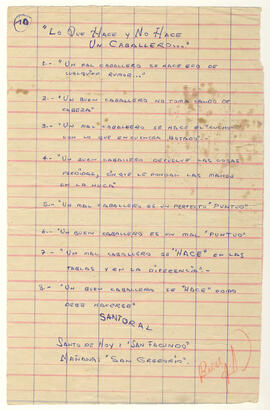 10
"LO QUE HACE Y NO HACE
UN CABALLERO..."
1.- "UN MAL CABALLERO SE HACE ECO DE
CUALQUIER RUMOR..."
2.- "UN BUEN CABALLERO NO TOMA CALDO DE
CABEZA"
3.- "UN MAL CABALLERO SE HACE EL "CUCHO"
CON LO QUE ENCUENTRA BOTADO".-
4.- "UN BUEN CABALLERO DEVUELVE LAS COSAS
PERDIDAS, SIN QUE LE PONGAN LAS MANOS
EN LA NUCA"
5.- "UN MAL CABALLERO ES UN PERFECTO "PUNTUDO"
6.- "UN BUEN CABALLERO ES UN MAL "PUNTUDO"
7.- "UN MAL CABALLERO SE "HACE" EN LAS
TABLAS Y EN LA DIFERENCIA".-
8.- "UN BUEN CABALLERO SE "HACE" COMO
DEBE HACERSE"
SANTORAL
SANTO DE HOY: "SAN FACUNDO"
MAÑANA: "SAN GREGORIO"